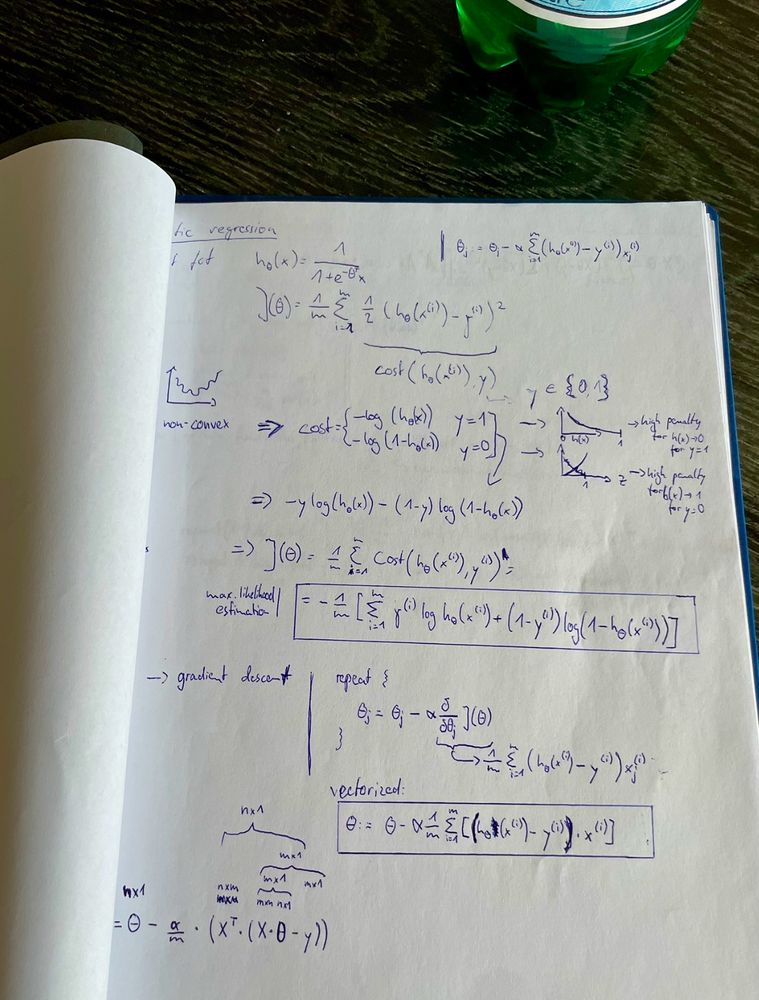 tic regression
θⱼ := θⱼ - α Σᵢ₌₁ᵐ (h₀(x⁽ⁱ⁾) - y⁽ⁱ⁾) xⱼ⁽ⁱ⁾
fct h_θ(x) = 1 / (1 + e^(-θᵀx))
J(θ) = 1/m Σᵢ₌₁ᵐ 1/2 (h_θ(x⁽ⁱ⁾) - y⁽ⁱ⁾)²
cost(h_θ(x⁽ⁱ⁾), y)
y ∈ {0,1}
non-convex
⇒ cost = { -log(h_θ(x)) y=1
-log(1-h_θ(x)) y=0
→ 0 h(x) 1
→ high penalty
for h(x) → 0
for y=1
→ 1 z
→ high penalty
for h(x) → 1
for y=0
⇒ -y log(h_θ(x)) - (1-y) log(1-h_θ(x))
s
⇒ J(θ) = 1/m Σᵢ₌₁ᵐ Cost(h_θ(x⁽ⁱ⁾), y⁽ⁱ⁾) =
max. likelihood
estimation
= -1/m [Σᵢ₌₁ᵐ y⁽ⁱ⁾ log h_θ(x⁽ⁱ⁾) + (1-y⁽ⁱ⁾) log(1-h_θ(x⁽ⁱ⁾))]
→ gradient descent
repeat {
θⱼ := θⱼ - α δ/δθⱼ J(θ)
}
→ 1/m Σᵢ₌₁ᵐ (h_θ(x⁽ⁱ⁾) - y⁽ⁱ⁾) xⱼ⁽ⁱ⁾
vectorized:
θ := θ - α 1/m Σᵢ₌₁ᵐ [(h_θ(x⁽ⁱ⁾) - y⁽ⁱ⁾) · x⁽ⁱ⁾]
n×1
m×1
m×1 m×1
n×1 n×m m×n n×1
= θ - α/m · (Xᵀ · (X·θ - y))